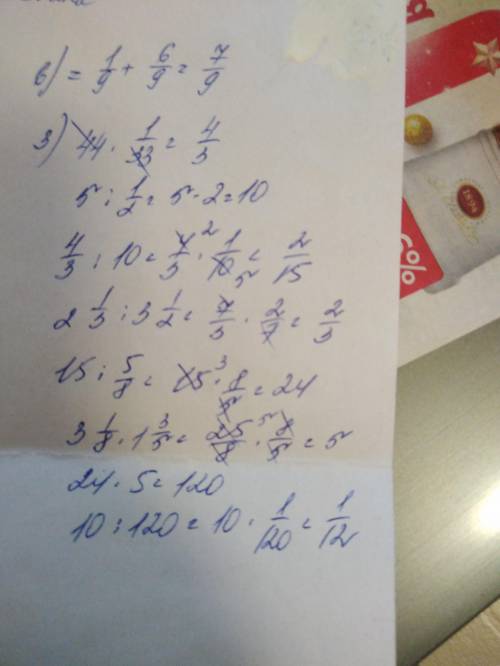 в) = 1/9 + 6/9 = 7/9
3) 44 · 1/33 = 4/3
5 : 1/2 = 5 · 2 = 10
4/3 : 10 = 4/3 · 2 1/10 5 = 2/15
2 1/3 : 3 1/2 = 7/3 · 2/7 = 2/3
15 : 5/8 = 15 · 3 8/5 = 24
3 1/8 · 1 3/5 = 25/8 · 5 8/5 = 5
24 · 5 = 120
10 : 120 = 10 · 1/120 = 1/12
1894
%